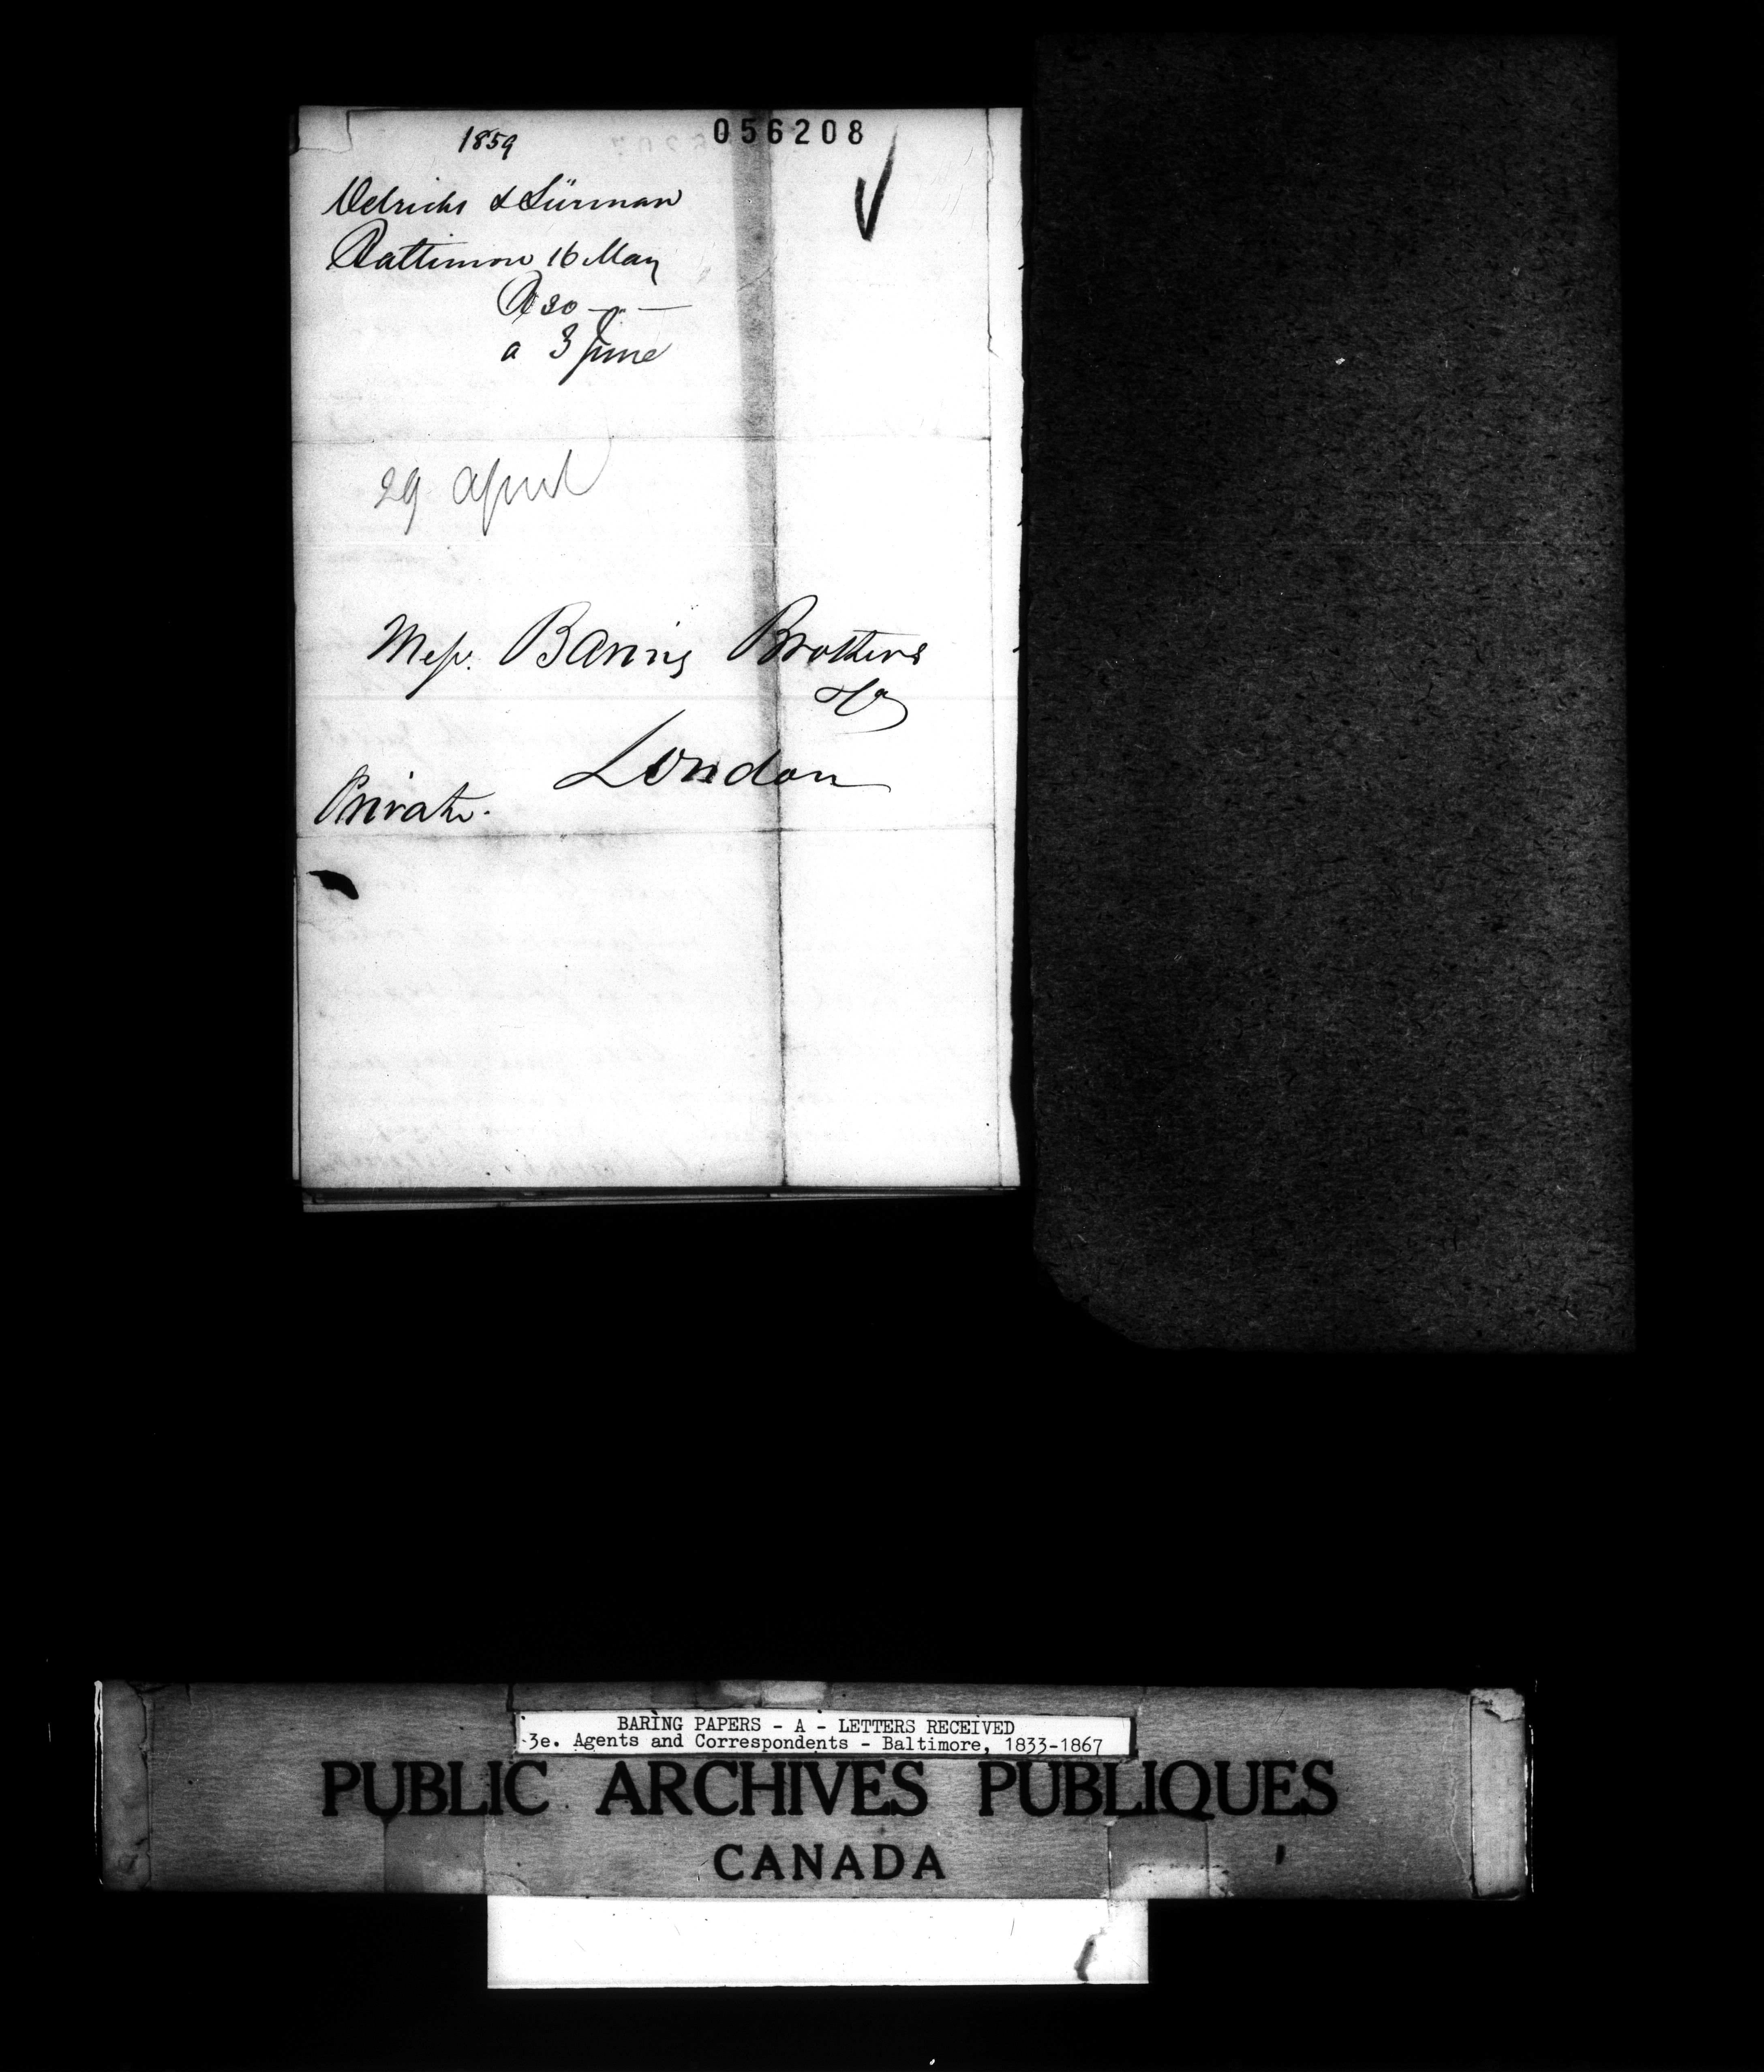 1859
056208
Oelrichs & Lürman
Baltimore 16 May
R 30 - " -
a 3 June
29 April
Mess. Baring Brothers
& Co
London
Private.
BARING PAPERS - A - LETTERS RECEIVED
3e. Agents and Correspondents - Baltimore, 1833-1867
PUBLIC ARCHIVES PUBLIQUES
CANADA